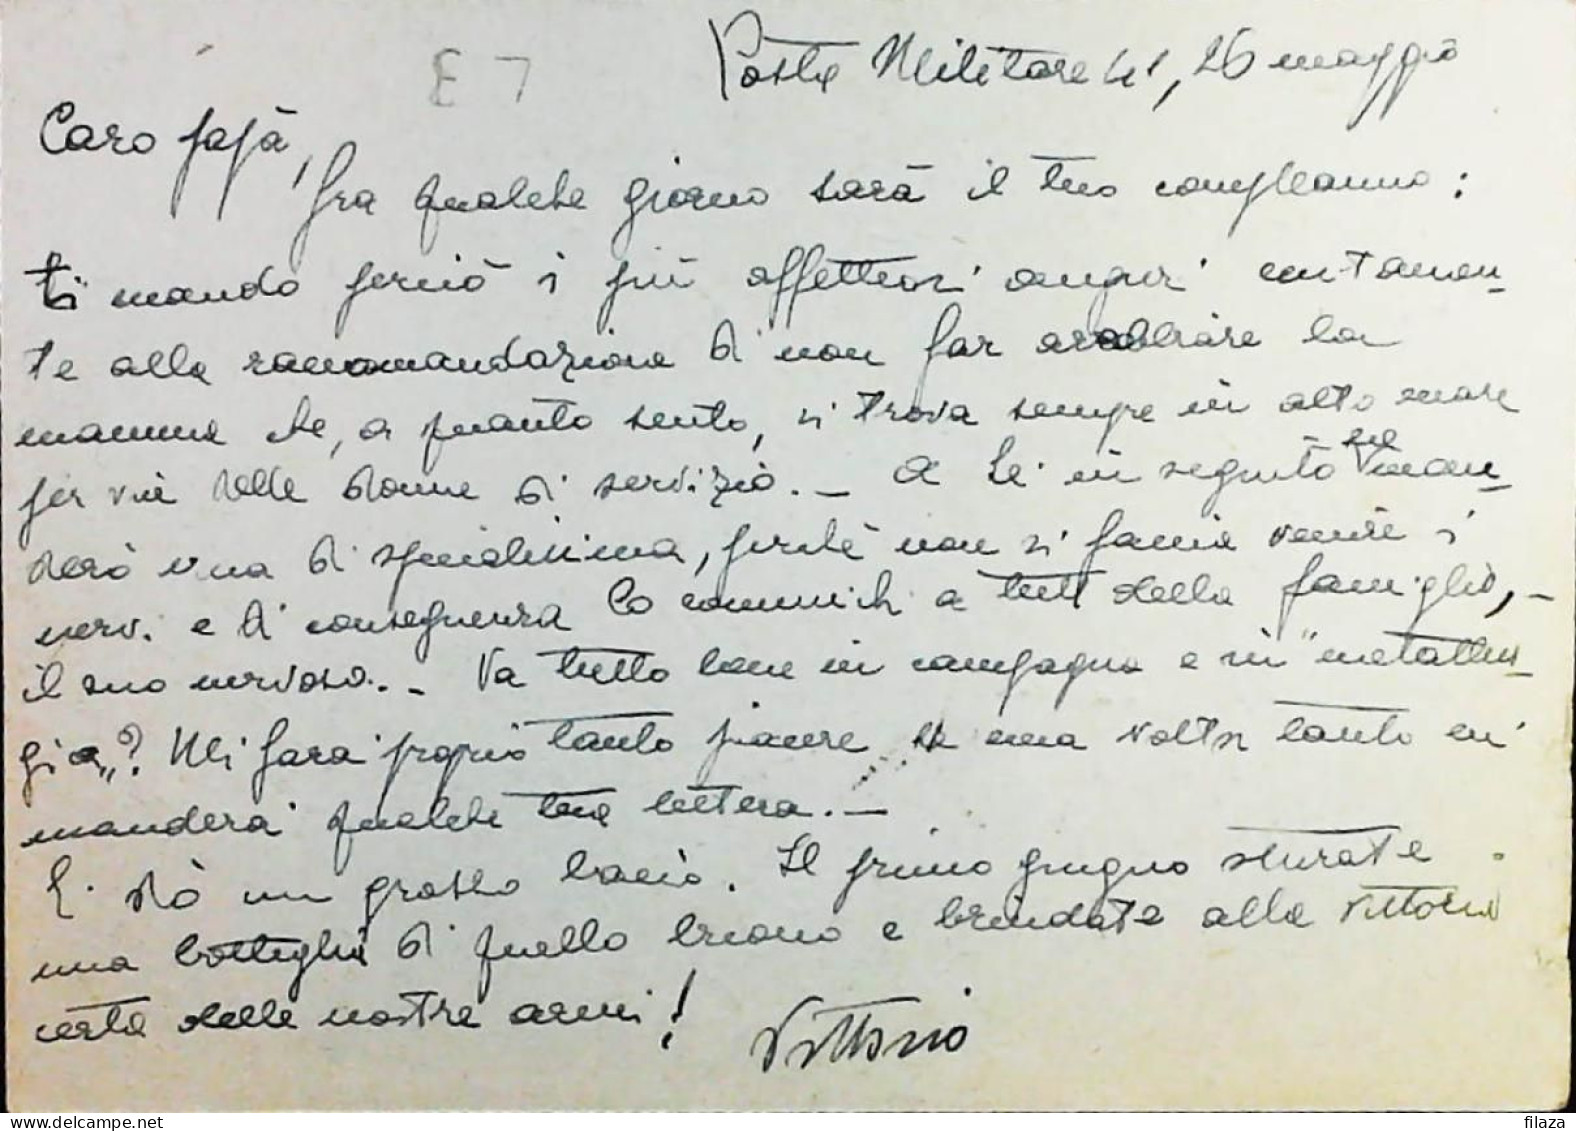 E 7
Posta Militare 41, 26 maggio
Caro papà,
fra qualche giorno sarà il tuo compleanno:
ti mando perciò i più affettuosi auguri unitamen-
te alla raccomandazione di non far arrabbiare la
mamma che, a quanto sento, si trova sempre in alto mare
per via delle donne di servizio. — A lei in seguito ne man-
derò una di specialissima, perché non si faccia venire i
nervi e di conseguenza lo comunichi a tutti della famiglia, –
il suo nervoso. – Va tutto bene in campagna e in "metallur-
gia"? Mi farà proprio tanto piacere se una volta tanto mi
manderai qualche tua lettera. —
Ti dò un grosso bacio. Il primo giugno sturate
una bottiglia di quello buono e brindate alla vittoria
certa delle nostre armi!
Vittorio
filaza